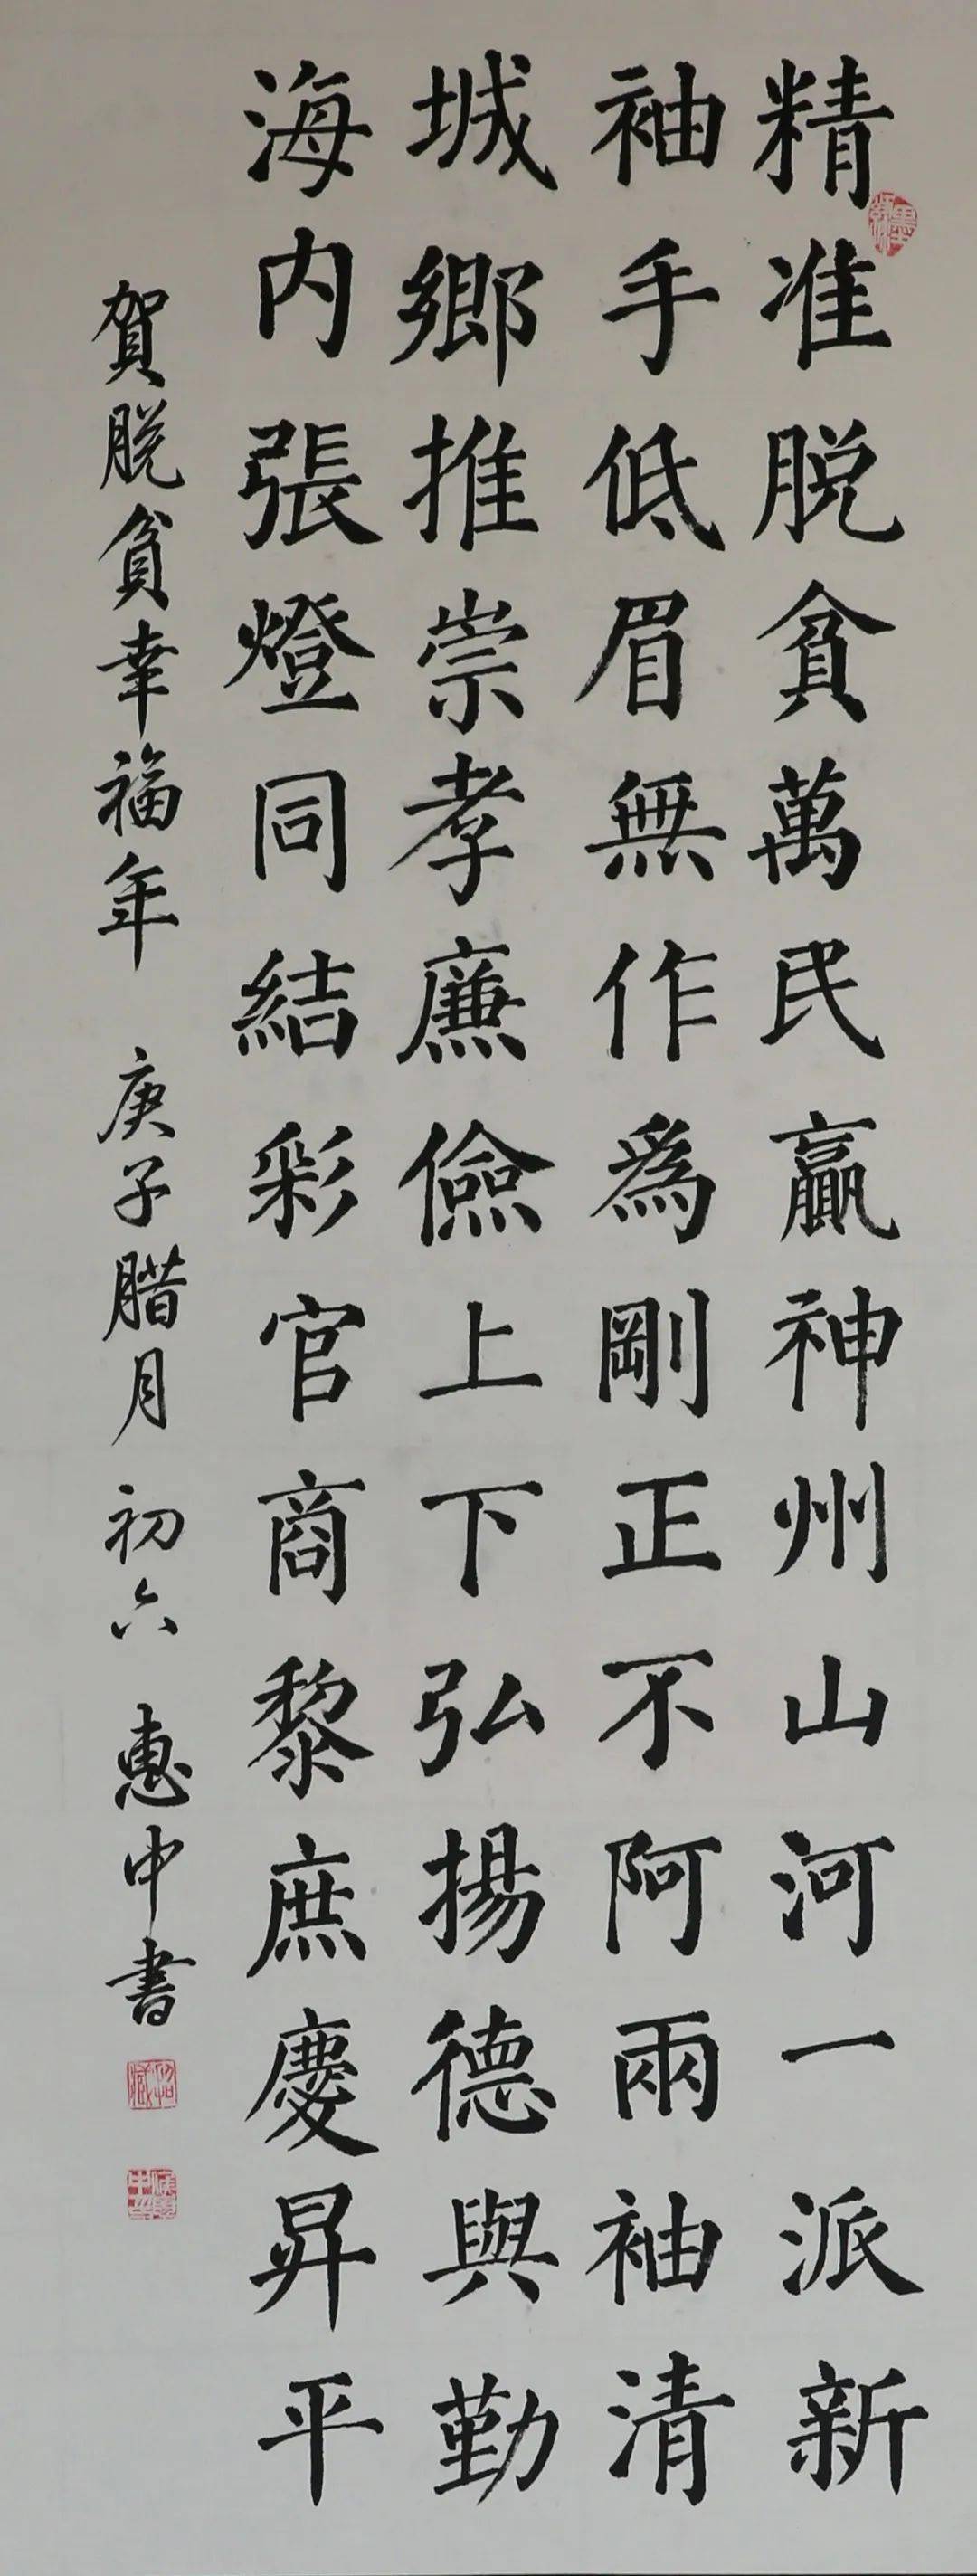 精准脱貧萬民贏神州山河一派新
袖手低眉無作爲剛正不阿兩袖清
城鄉推崇孝廉儉上下弘揚德與勤
海内張燈同結彩官商黎庶慶昇平
賀脱貧幸福年 庚子腊月初六 惠中書